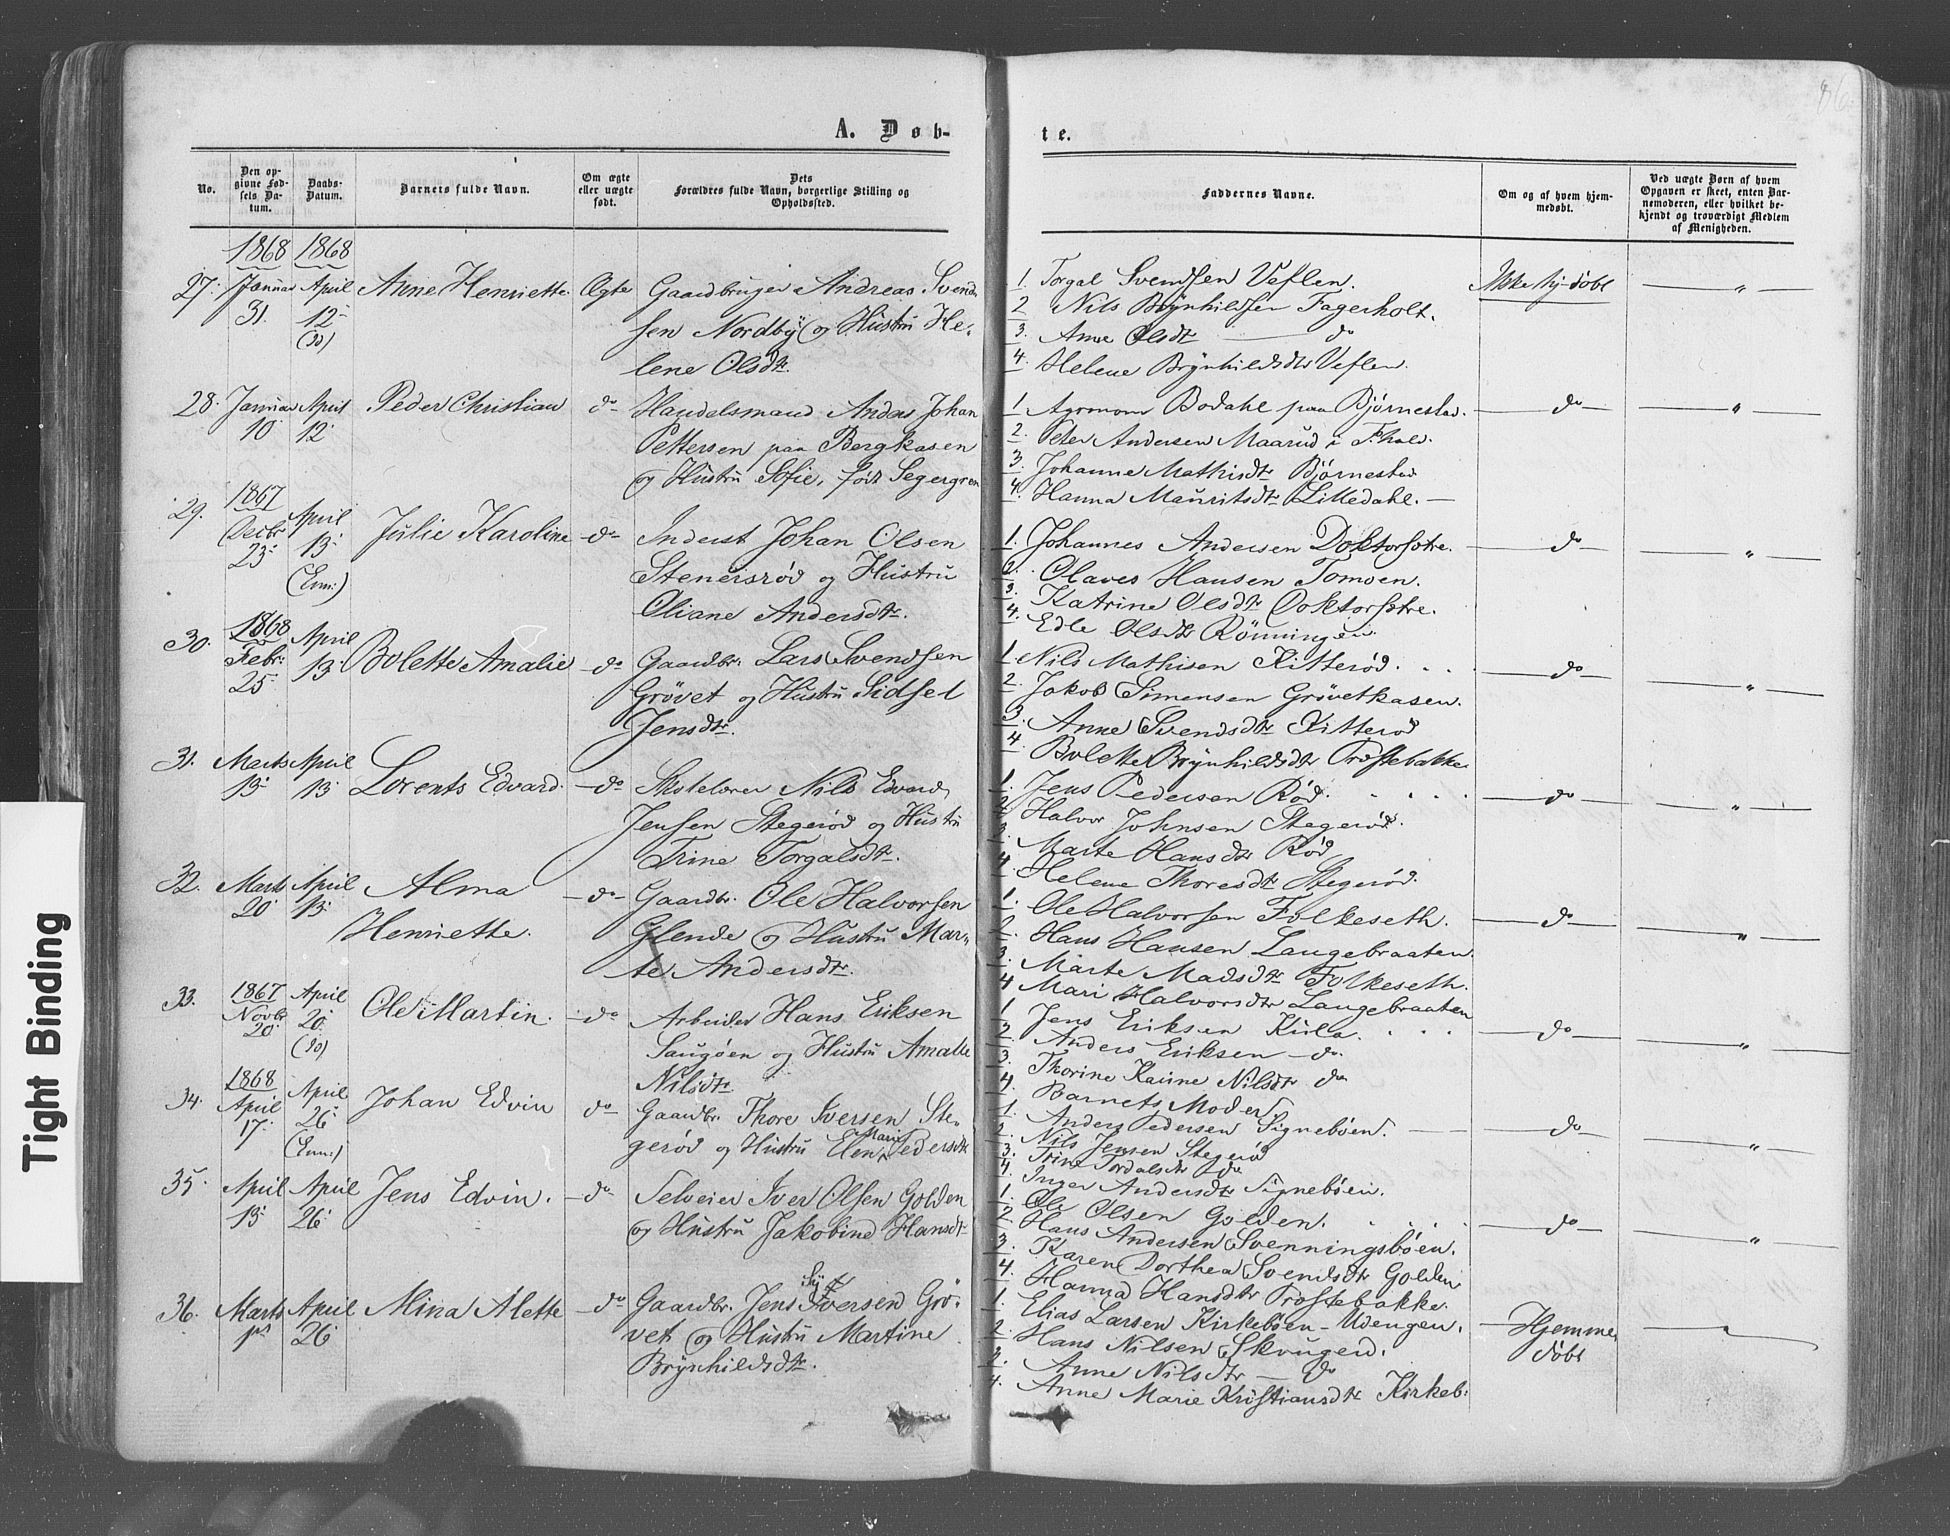 86
A. Døb-
te.
No.
Den opgivne Fødsels Datum.
Daabs-Datum.
Barnets fulde Navn.
Om ægte eller uægte født.
Dets Forældres fulde Navn, borgerlige Stilling og Opholdssted.
Faddernes Navne.
Om og af hvem hjemmedøbt.
Ved uægte Børn af hvem Opgaven er skeet, enten Barnemoderen, eller hvilket bekjendt og troværdigt Medlem af Menigheden.
1868 1868
27. Januar 31. April 12 (Id) Anne Henriette. Ægte
Gaardbruger Andreas Svend-
sen Nordby og Hustru He-
lene Olsdtr.
1. Torgal Svendsen Veflen.
2 Nils Brynhildsen Fagerholt.
3. Anne Olsdtr do
4. Helene Brynhildsdtr Veflen.
Ikke hj-døbt "
28. Januar 10 April 12 Peder Christian do
Handelsmand Anders Johan
Pettersen paa Bergkasen
og Hustru Sofie, født Segergren
1 Agronom Bodahl paa Bjørnestad.
2. Peter Andersen Maarud i F.hald.
3. Johanne Mathisdtr Bjørnestad
4. Hanna Mauritsdtr Lilledahl.
do "
29. 1867 Decbr 23 April 13 (Enn:) Julie Karoline do
Inderst Johan Olsen
Stenersrød og Hustru
Oliane Andersdtr.
1. Johannes Andersen Doktorsptre.
2. Olaves Hansen Tomoen.
3. Katrine Olsdtr Doktorsptre.
4. Edle Olsdtr Rönningen.
do "
30. 1868 Febr: 25 April 13 Bolette Amalie do
Gaardbr. Lars Svendsen
Grövet og Hustru Sidsel
Jensdtr.
1 Nils Mathisen Kitterød.
2. Jakob Simensen Grövetkasen.
3. Anne Svendsdtr Kitterød
4. Bolette Brynhildsdtr Præstebakke
do "
31. Marts 13 April 13 Lorents Edvard. do
Skolelærer Nils Edvard
Jensen Stegerød og Hustru
Trine Torgalsdtr.
1. Jens Pedersen Rød.
2. Halvor Johnsen Stegerød.
3. Marte Hansdtr Rød
4. Helene Thoresdtr Stegerød.
do "
32. Marts 20 April 13 Alma
Henriette. do
Gaardbr. Ole Halvorsen
Glende og Hustru Mar-
te Andersdtr.
1. Ole Halvorsen Folkeseth.
2. Hans Hansen Langebraaten.
3. Marte Madsdtr Folkeseth.
4 Mari Halvorsdtr Langebraaten
do "
33. 1867 Novbr 20 April 20 (Id) Ole Martin. do
Arbeider Hans Eriksen
Saugøen og Hustru Amalie
Nilsdtr
1 Jens Eriksen Kirla.
2. Anders Eriksen do.
3. Thorine Karine Nilsdtr do
4. Barnets Moder.
do "
34. 1868 April 17. April 26 (Enn:) Johan Edvin do
Gaardbr. Thore Iversen Ste-
gerød og Hustru Elen Marie Pedersdtr
1. Anders Pedersen Signebøen.
2. Nils Jensen Stegerød
3. Trine Tordalsdtr do
4. Inger Andersdtr Signebøen.
do "
35. April 13 April 26 Jens Edvin. do
Selveier Iver Olsen Golden
og Hustru Jakobine Hansdtr
1. Ole Olsen Golden.
2. Hans Andersen Svenningsbøen.
3. Karen Dorthea Svendsdtr Golden
4. Hanna Hansdtr Præstebakke.
do "
36. Marts April 26 Mina Alette do
Gaardbr. Jens Iversen Grö-
vet og Hustru Martine
Brynhildsdtr.
1. Elias Larsen Kirkebøen-Udengen.
2. Hans Nilsen Skougen.
3. Anne Nilsdtr do
4. Anne Marie Kristiansdtr Kirkeb:
Hjemme
døbt
Tight Binding